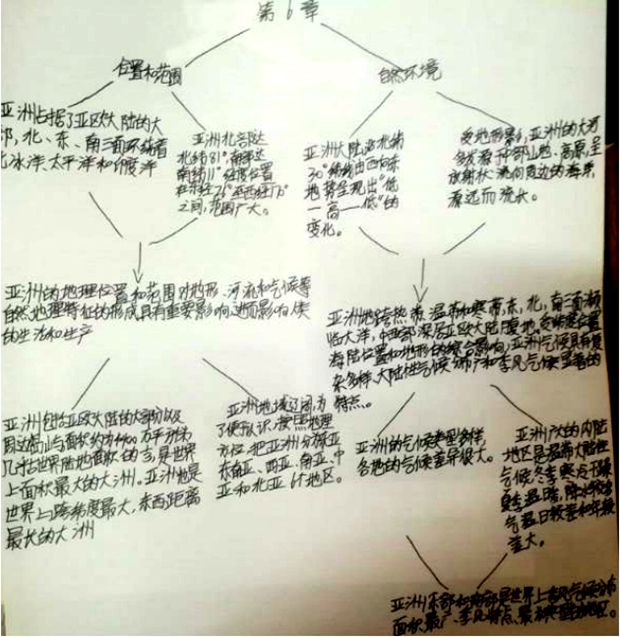 第6章
位置和范围
自然环境
亚洲占据了亚欧大陆的大
部,北、东、南三面环绕着
北冰洋、太平洋和印度洋
亚洲北部达
北纬81°,南部达
南纬11°,经度位置
在东经26°至西经170°
之间,范围广大。
亚洲大陆沿北纬
30°
地势呈现出"低
一高一低"的
变化。
受地形影响,亚洲的大河
多发源于中部山地、高原,呈
放射状流向周边的海洋,
源远而流长。
亚洲的地理位置和范围对地形、河流和气候等
自然地理特征的形成具有重要影响,进而影响人类
的生活和生产
亚洲地跨热带、温带和寒带,东、北、南三面濒
临大洋,中西部深居亚欧大陆腹地。受纬度位置
海陆位置和地形的综合影响,亚洲气候具有复
杂多样、大陆性气候分布广和季风气候显著的
特点。
亚洲包括亚欧大陆的大部分以及
周边岛屿,面积约4400万平方千米
几乎占世界陆地面积的 是世界
上面积最大的大洲。亚洲也是
世界上跨纬度最大,东西距离
最长的大洲
亚洲地域辽阔,为
了便于认识,按照地理
方位,把亚洲分为东亚
东南亚、西亚、南亚、中
亚和北亚6个地区。
亚洲的气候类型多样,
各地的气候差异很大。
亚洲广大的内陆
地区是温带大陆性
气候,冬季寒冷干燥
夏季温暖,降水较少
气温日较差和年较
差大。
亚洲东部和南部是世界上季风气候分布
面积最广、季风特点最 地区。